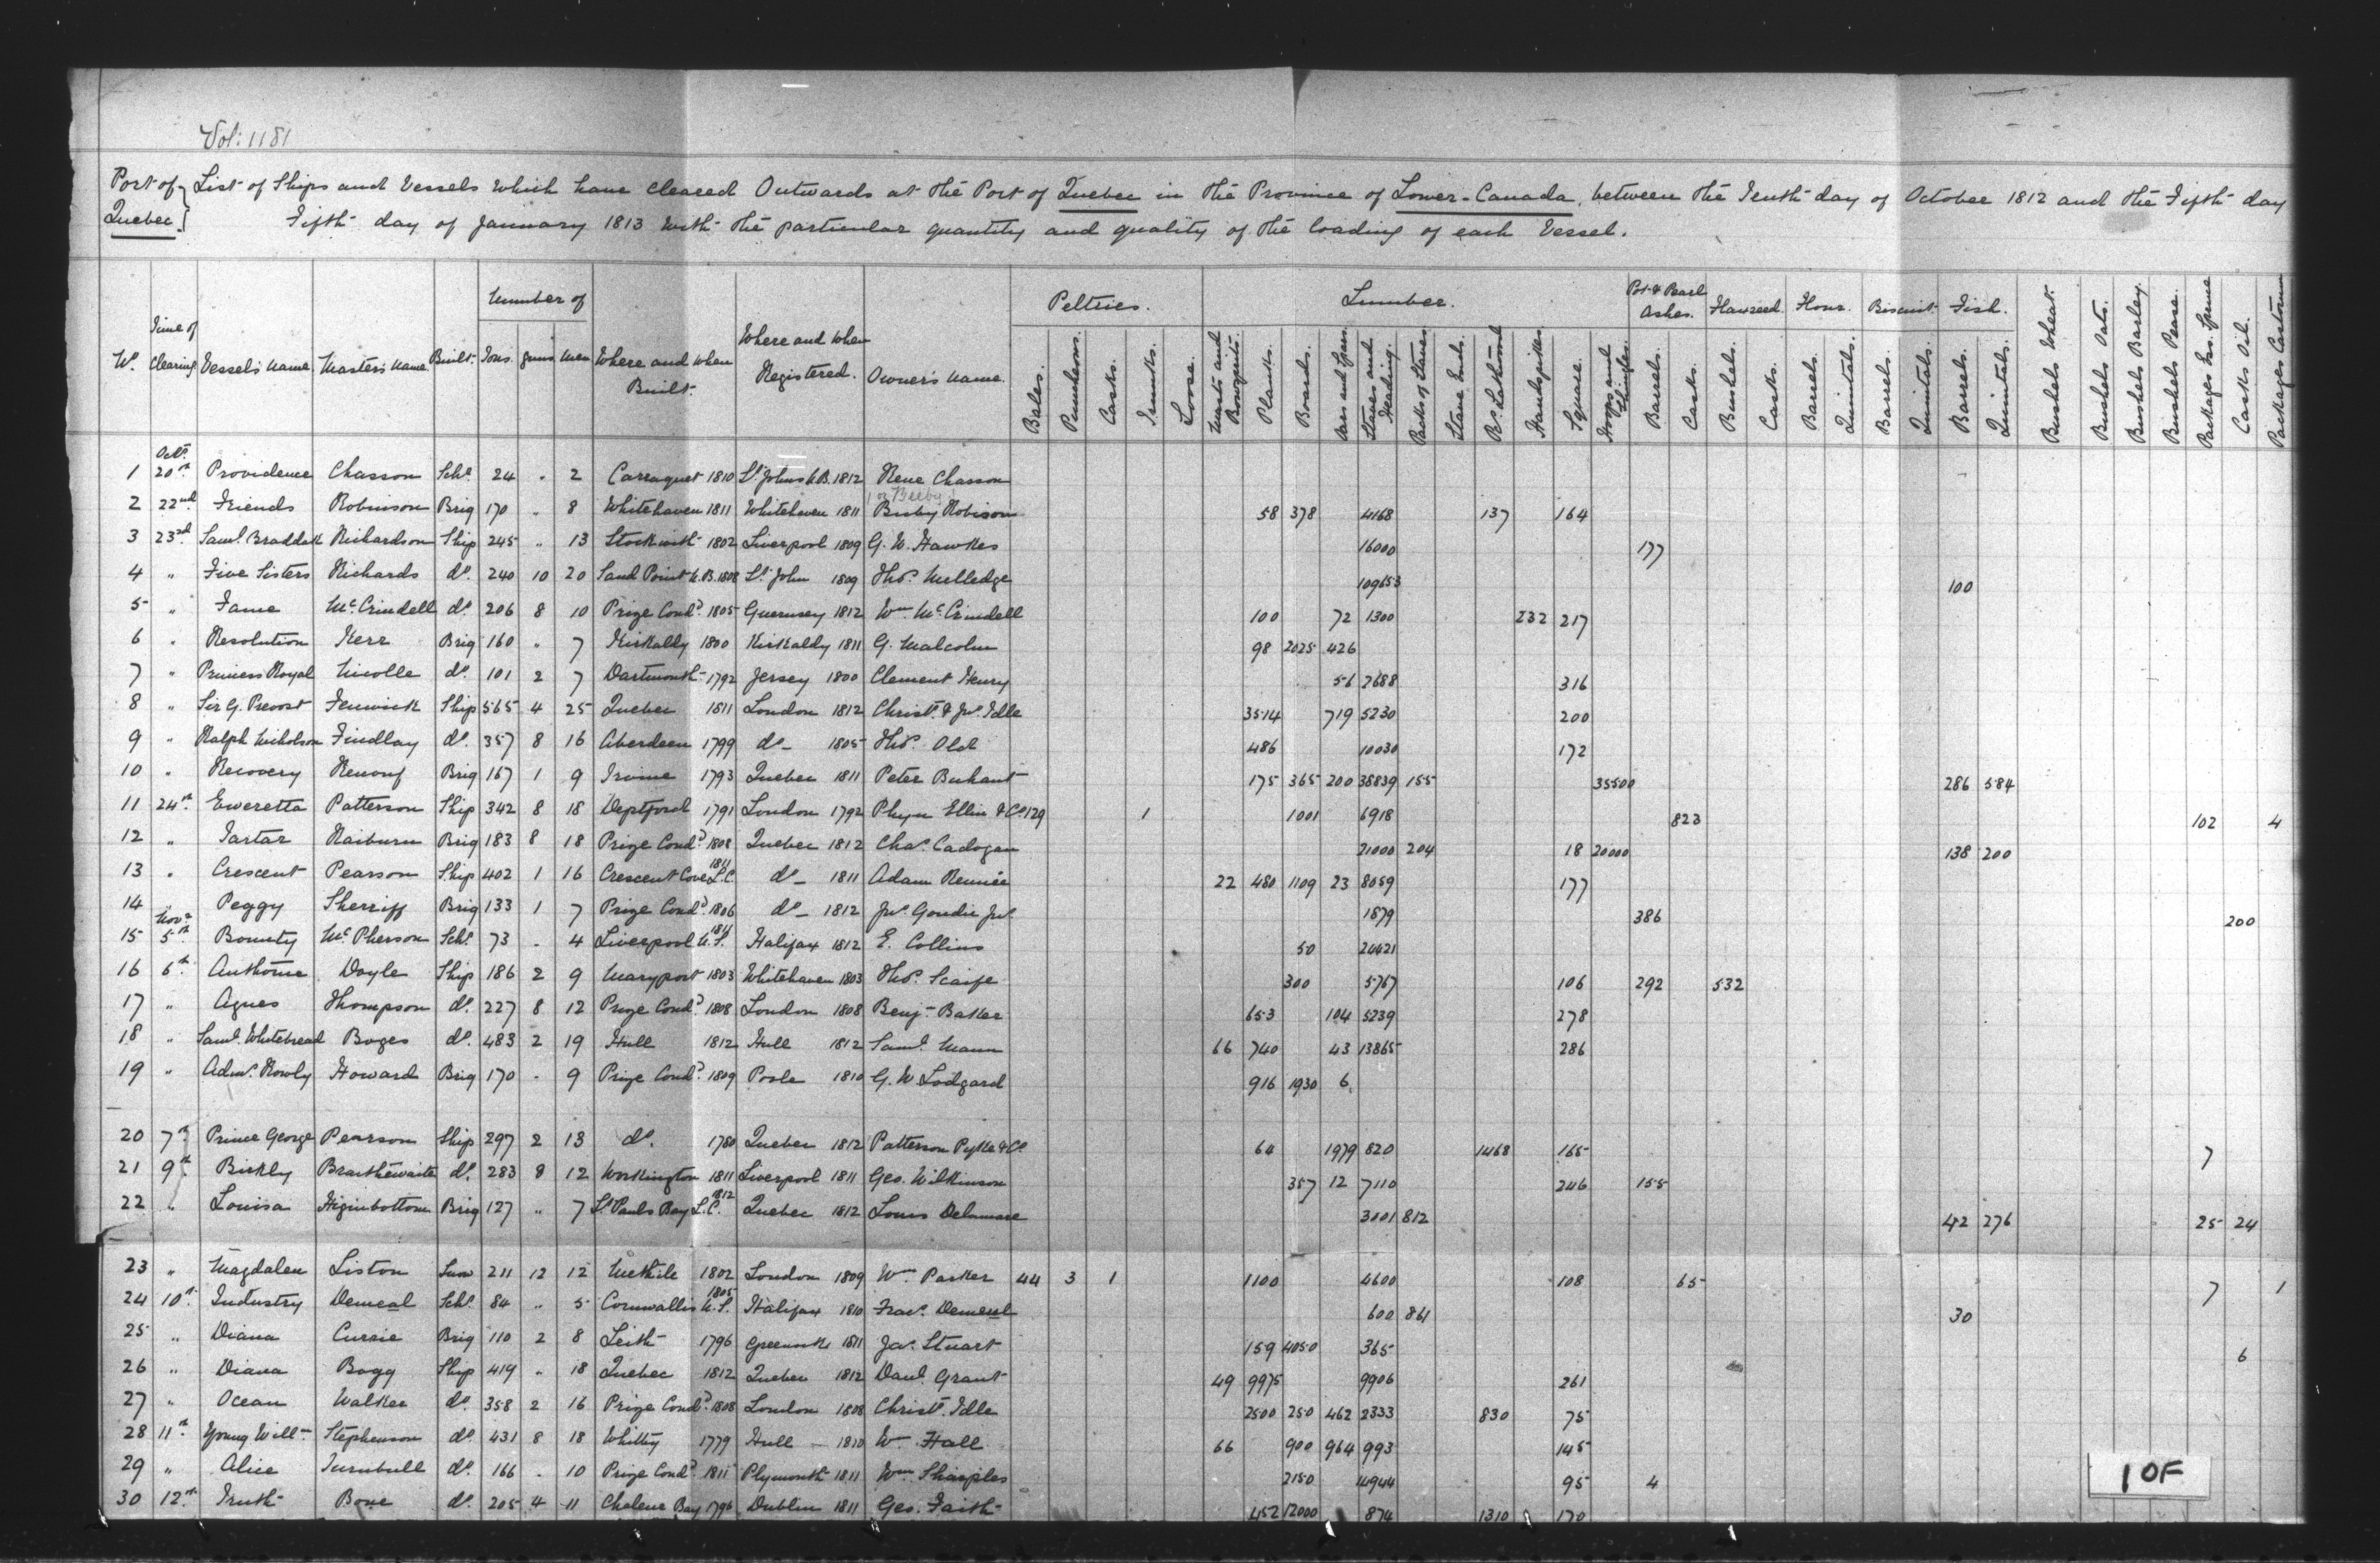 Vol: 1181
Port of Quebec. } List of Ships and Vessels which have cleared Outwards at the Port of Quebec in the Province of Lower-Canada, between the Tenth day of October 1812 and the Fifth day
Fifth day of January 1813 with the particular quantity and quality of the loading of each Vessel.
Number of
Peltries. Lumber. Pot & Pearl Ashes. Flaxseed. Flour. Biscuit. Fish.
No. Time of Clearing Vessel's Name. Master's Name. Built. Tons. Guns. Men Where and When Built. Where and When Registered. Owner's Name. Bales. Puncheons. Casks. Trunks. Loose. Masts and Bowsprits. Planks. Boards. Oars and Spars. Staves and Heading. Packs of Staves Stave Ends. Ps. Lathwood Handspikes Square. Hoops and Shingles. Barrels. Casks. Bushels. Casks. Barrels. Quintals. Barrels. Quintals. Barrels. Quintals. Bushels Wheat. Bushels Oats. Bushels Barley. Bushels Pease. Packages Ess. Spruce Casks Oil. Packages Castorum
Octr.
1 20th Providence Chasson Schr. 24 " 2 Carraquet 1810 St. Johns N.B. 1812 Rene Chasson
or Beeby
2 22nd Friends Robinson Brig 170 " 8 Whitehaven 1811 Whitehaven 1811 Busby Robison 58 378 4168 137 164
3 23rd Saml. Braddak Richardson Ship 245 " 13 Stockwith 1802 Liverpool 1809 G. W. Hawkes 16000 177
4 " Five Sisters Richards do. 240 10 20 Sand Point N.B. 1808 St. John 1809 Thos. Milledge 109653 100
5 " Fame McCrindell do. 206 8 10 Prize Cond. 1805 Guernsey 1812 Wm McCrindell 100 72 1300 232 217
6 " Resolution Kerr Brig 160 " 7 Kirkaldy 1800 Kirkaldy 1811 G. Malcolm 98 2025 426
7 " Princess Royal Nicolle do. 101 2 7 Dartmouth 1792 Jersey 1800 Clement Henry 56 2688 316
8 " Sir G. Prevost Fenwick Ship 565 4 25 Quebec 1811 London 1812 Christ. & Jno. Idle 3514 719 5230 200
9 " Ralph Nicholson Findlay do. 357 8 16 Aberdeen 1799 do 1805 Thos. Old 486 10030 172
10 " Recovery Renouf Brig 167 1 9 Irvine 1793 Quebec 1811 Peter 175 365 200 38839 155 35500 286 584
11 24th Eweretta Patterson Ship 342 8 18 Deptford 1791 London 1792 Phyn Ellin & Co. 129 1 1001 6918 823 102 4
12 " Tartar Raiburn Brig 183 8 18 Prize Cond. 1808 Quebec 1812 Chas. Cadogan 21000 204 18 20000 138 200
13 " Crescent Pearson Ship 402 1 16 Crescent Cove L.C. 1811 do 1811 Adam Rennie 22 480 1109 23 8059 177
14 " Peggy Sherriff Brig 133 1 7 Prize Cond. 1806 do 1812 Jno. Goudie Jnr. 1879 386 200
Novr.
15 5th Bounty McPherson Schr. 73 " 4 Liverpool N.S. 1811 Halifax 1812 E. Collins 50 24421
16 6th Anthorne Doyle Ship 186 2 9 Maryport 1803 Whitehaven 1803 Thos. Scaife 300 5767 106 292 532
17 " Agnes Thompson do. 227 8 12 Prize Cond. 1808 London 1808 Benj. Baker 653 104 5239 278
18 " Saml. Whitebread Boges do. 483 2 19 Hull 1812 Hull 1812 Saml. Mann 66 740 43 13865 286
19 " Adml. Rowly Howard Brig 170 " 9 Prize Cond. 1809 Poole 1810 G. W Lodgard 916 1930 6
20 7th Prince George Pearson Ship 297 2 13 do. 1780 Quebec 1812 Patterson Pyke & Co. 64 1979 820 1468 165 7
21 9th Bickly Braithewaite do. 283 8 12 Workington 1811 Liverpool 1811 Geo. Wilkinson 357 12 7110 246 155
22 " Louisa Higinbottom Brig 127 " 7 St. Pauls Bay L.C. 1812 Quebec 1812 Louis Delamare 3001 812 42 276 25 24
23 " Magdalen Liston Snow 211 12 12 1802 London 1809 Wm Parker 44 3 1 1100 4600 108 65 7 1
24 10th Industry Demeal Schr. 84 " 5 Cornwallis N.S. 1805 Halifax 1810 Fras. Demeul 600 861 30
25 " Diana Currie Brig 110 2 8 Leith 1796 Greenock 1811 Jas. Stuart 159 4050 365 6
26 " Diana Bogg Ship 419 " 18 Quebec 1812 Quebec 1812 Danl. Grant 49 9975 9906 261
27 " Ocean Walker do. 358 2 16 Prize Cond. 1808 London 1808 Christ. Idle 2500 250 462 2333 830 75
28 11th Young Willm Stephenson do. 431 8 18 Whitby 1779 Hull 1810 Wm Hall 66 900 964 993 145
29 " Alice Turnbull do. 166 " 10 Prize Cond. 1811 Plymouth 1811 Wm Sharples 2150 14944 95 4
30 12th Truth Bone do. 205 4 11 Chaleur Bay 1796 Dublin 1811 Geo. Faith 452 12000 874 1310 170
1 OF